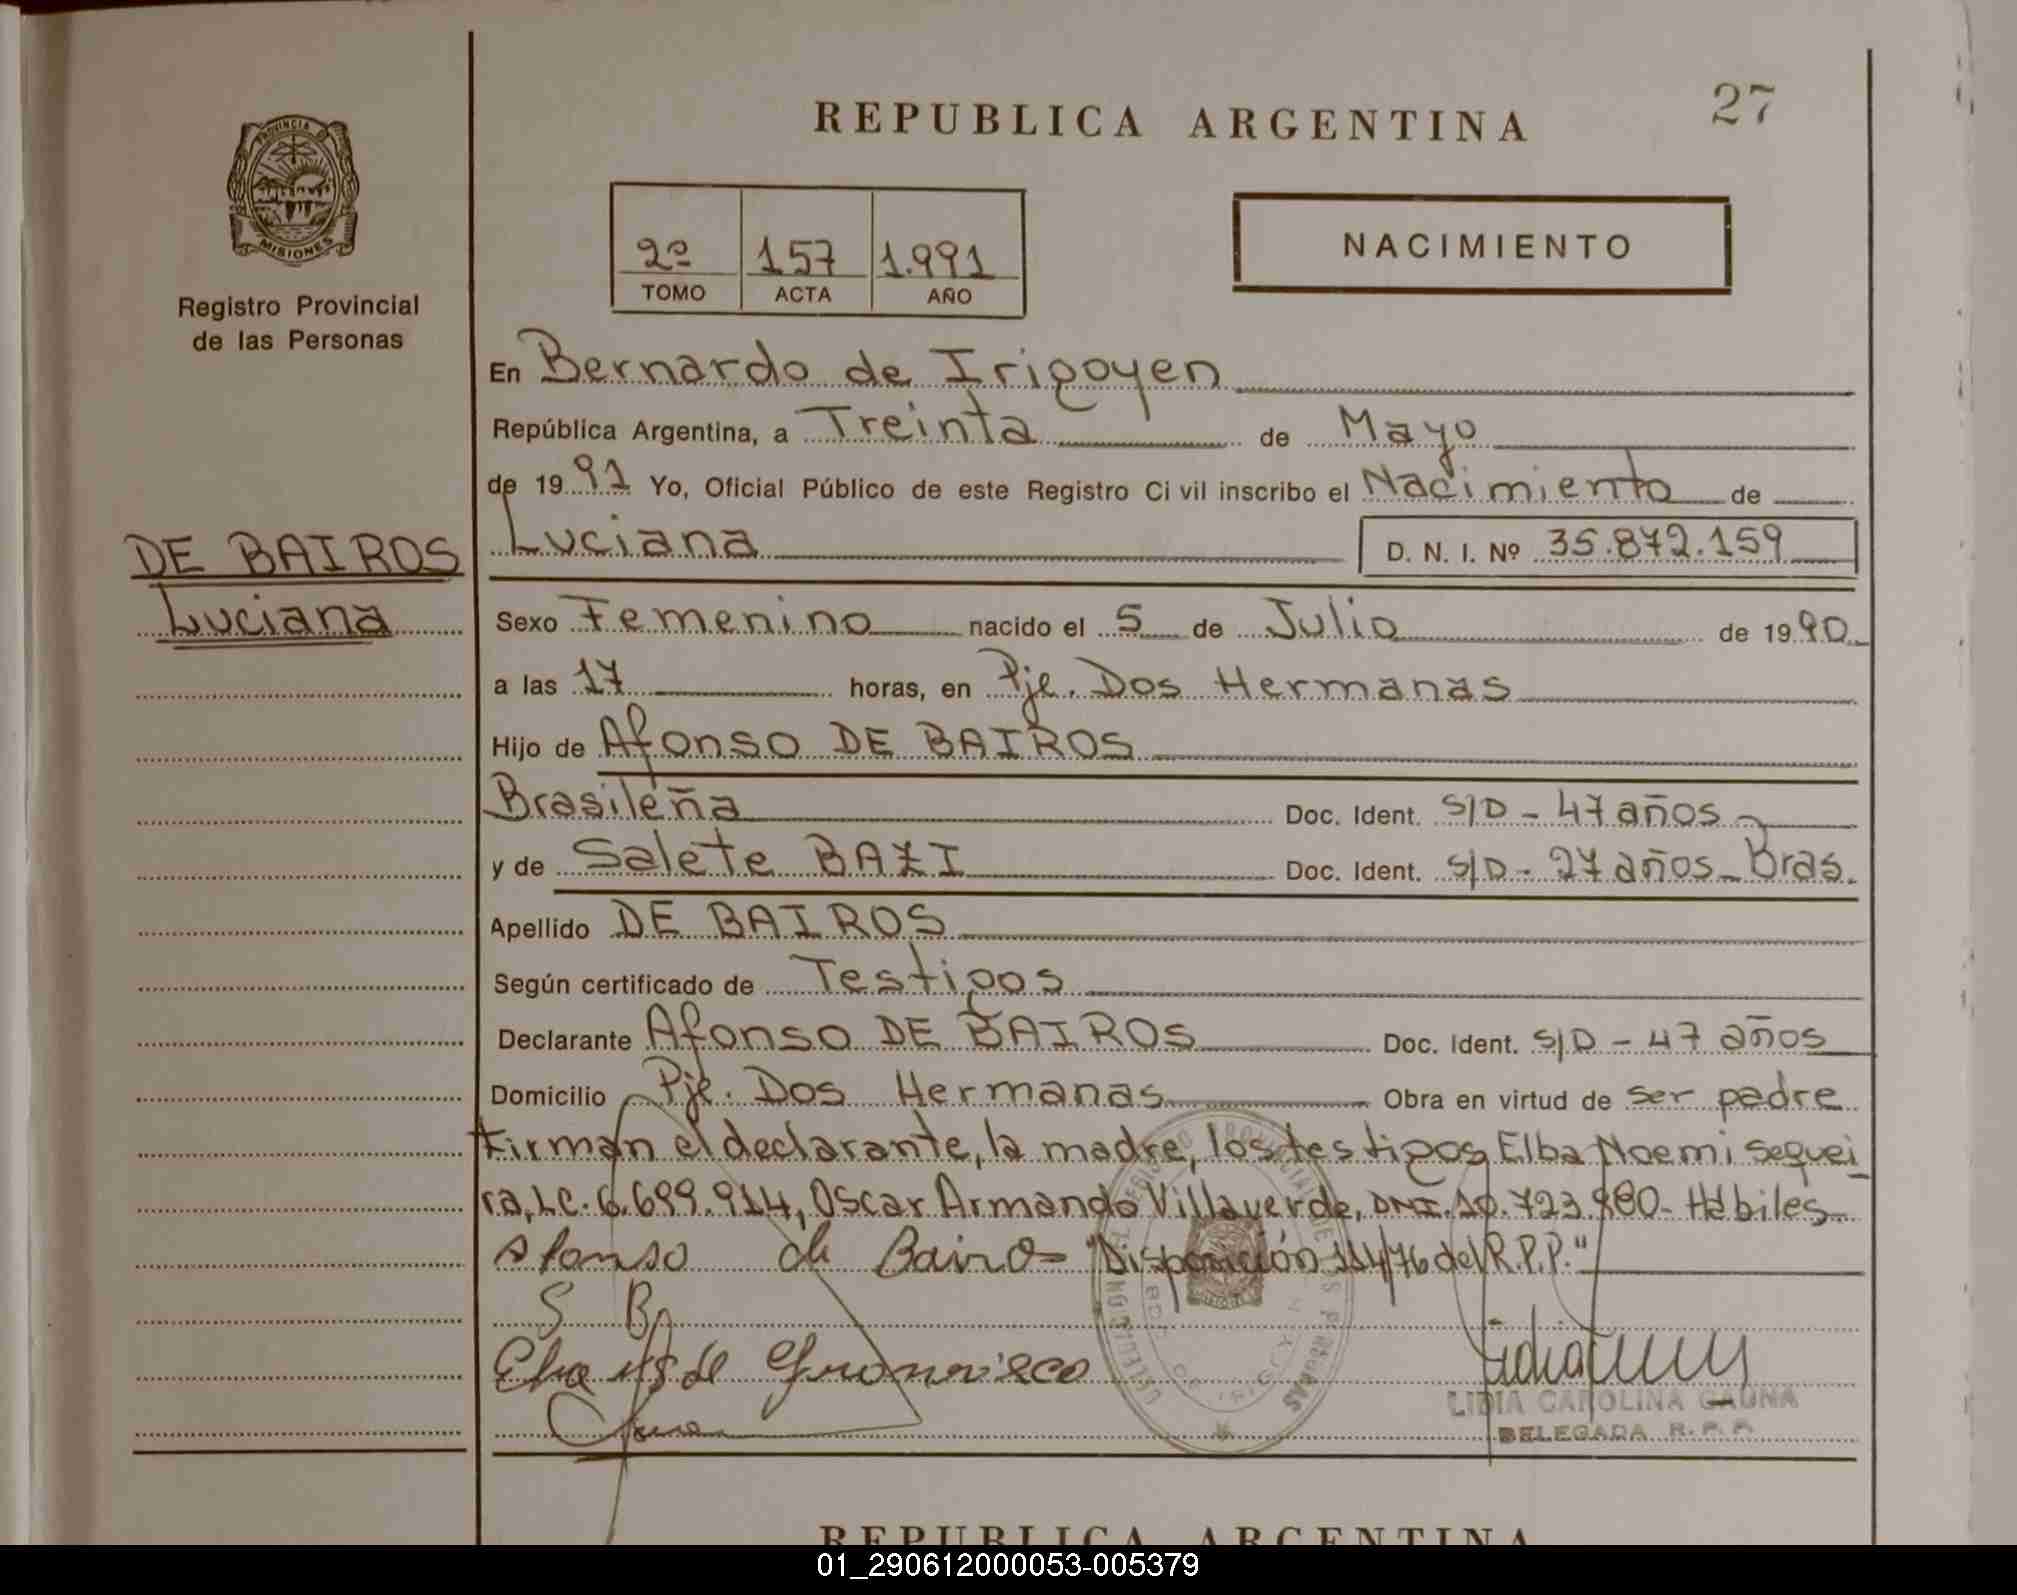 27
REPUBLICA ARGENTINA
PROVINCIA DE MISIONES
Registro Provincial
de las Personas
2º 157 1.991
TOMO ACTA AÑO
NACIMIENTO
En Bernardo de Irigoyen
República Argentina, a Treinta de Mayo
de 1991 Yo, Oficial Público de este Registro Civil inscribo el Nacimiento de
Luciana D. N. I. Nº 35.872.159
DE BAIROS
Luciana
Sexo Femenino nacido el 5 de Julio de 1990
a las 17 horas, en Pje. Dos Hermanas
Hijo de Afonso DE BAIROS
Brasileña Doc. Ident. S/D - 47 años
y de Salete BAZI Doc. Ident. S/D - 27 años - Bras.
Apellido DE BAIROS
Según certificado de Testigos
Declarante Afonso DE BAIROS Doc. Ident. S/D - 47 años
Domicilio Pje. Dos Hermanas Obra en virtud de ser padre
Firman el declarante, la madre, los testigos Elba Noemi Sequei
ra, LC. 6.699.914, Oscar Armando Villaverde, DNI. 10.723.980 - Hábiles
Afonso de Bairos "Disposición 114/76 del R.P.P."
S B
LIDIA CAROLINA GAUNA
DELEGADA R. P. P.
REPUBLICA ARGENTINA
01_290612000053-005379